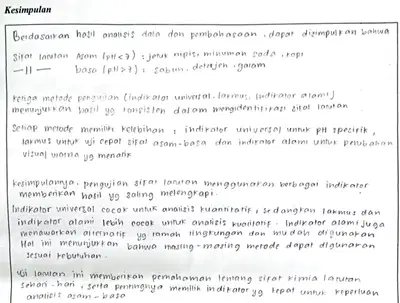 Kesimpulan
Berdasarkan hasil analisis data dan pembahasaan, dapat disimpulkan bahwa
Sifat larutan Asam (pH<7) : jeruk nipis, minuman soda, kopi
—||— basa (pH>7) : sabun, detrajen, garam
Ketiga metode pengujian (indikator universal, lakmus, indikator alami)
menunjukkan hasil yg konsisten dalam mengidentifikasi sifat larutan
Setiap metode memiliki kelebihan : indikator universal untuk pH spesifik,
lakmus untuk uji cepat sifat asam-basa dan indikator alami untuk perubahan
visual warna yg menarik
Kesimpulannya, pengujian sifat larutan menggunakan berbagai indikator
memberikan hasil yg saling melengkapi.
Indikator universal cocok untuk analisis kuantitatif, sedangkan lakmus dan
indikator alami lebih cocok untuk analisis kualitatif. Indikator alami juga
menawarkan alternatif yg ramah lingkungan dan mudah digunakan
Hal ini menunjukkan bahwa masing-masing metode dapat digunakan
sesuai kebutuhan.
Uji larutan ini memberikan pemahaman tentang sifat kimia larutan
sehari-hari, serta pentingnya memilih indikator yg tepat untuk keperluan
analisis asam-basa